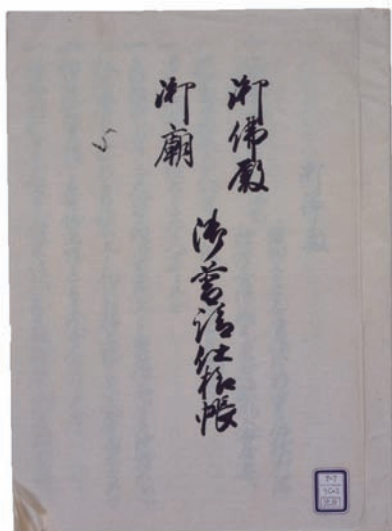 御佛殿
御廟
御普請仕様帳